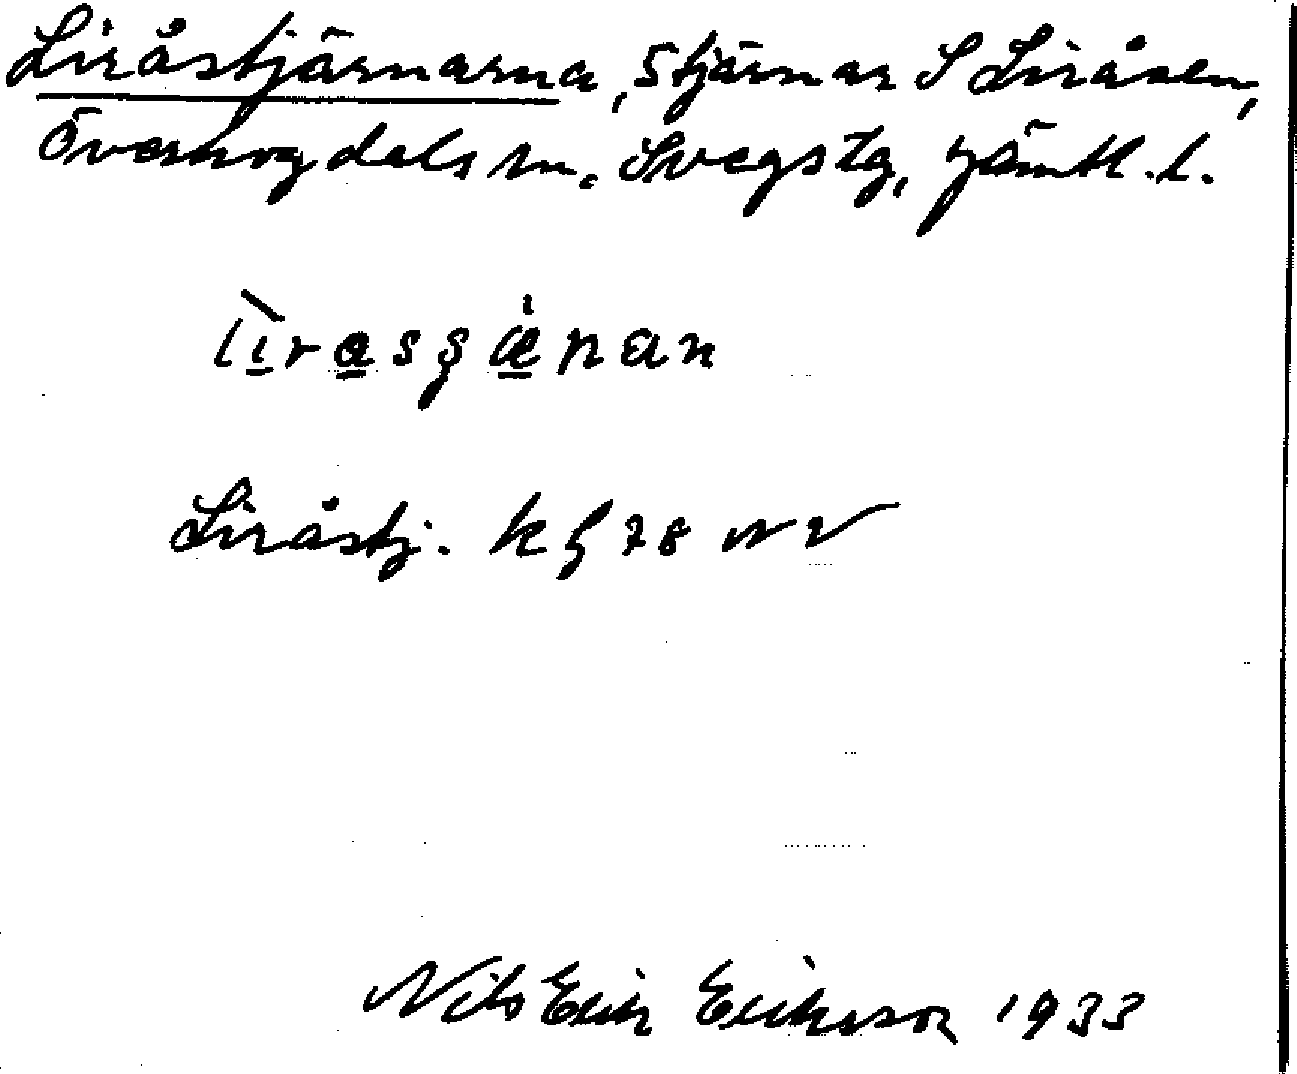 Liråstjärnarna, 5 tjärnar S Liråsen,
Överhogdals sn. Svegs tg, Jämtl. l.
Liråstj. k bl 78 NV
Nils Erik Eriksson 1933